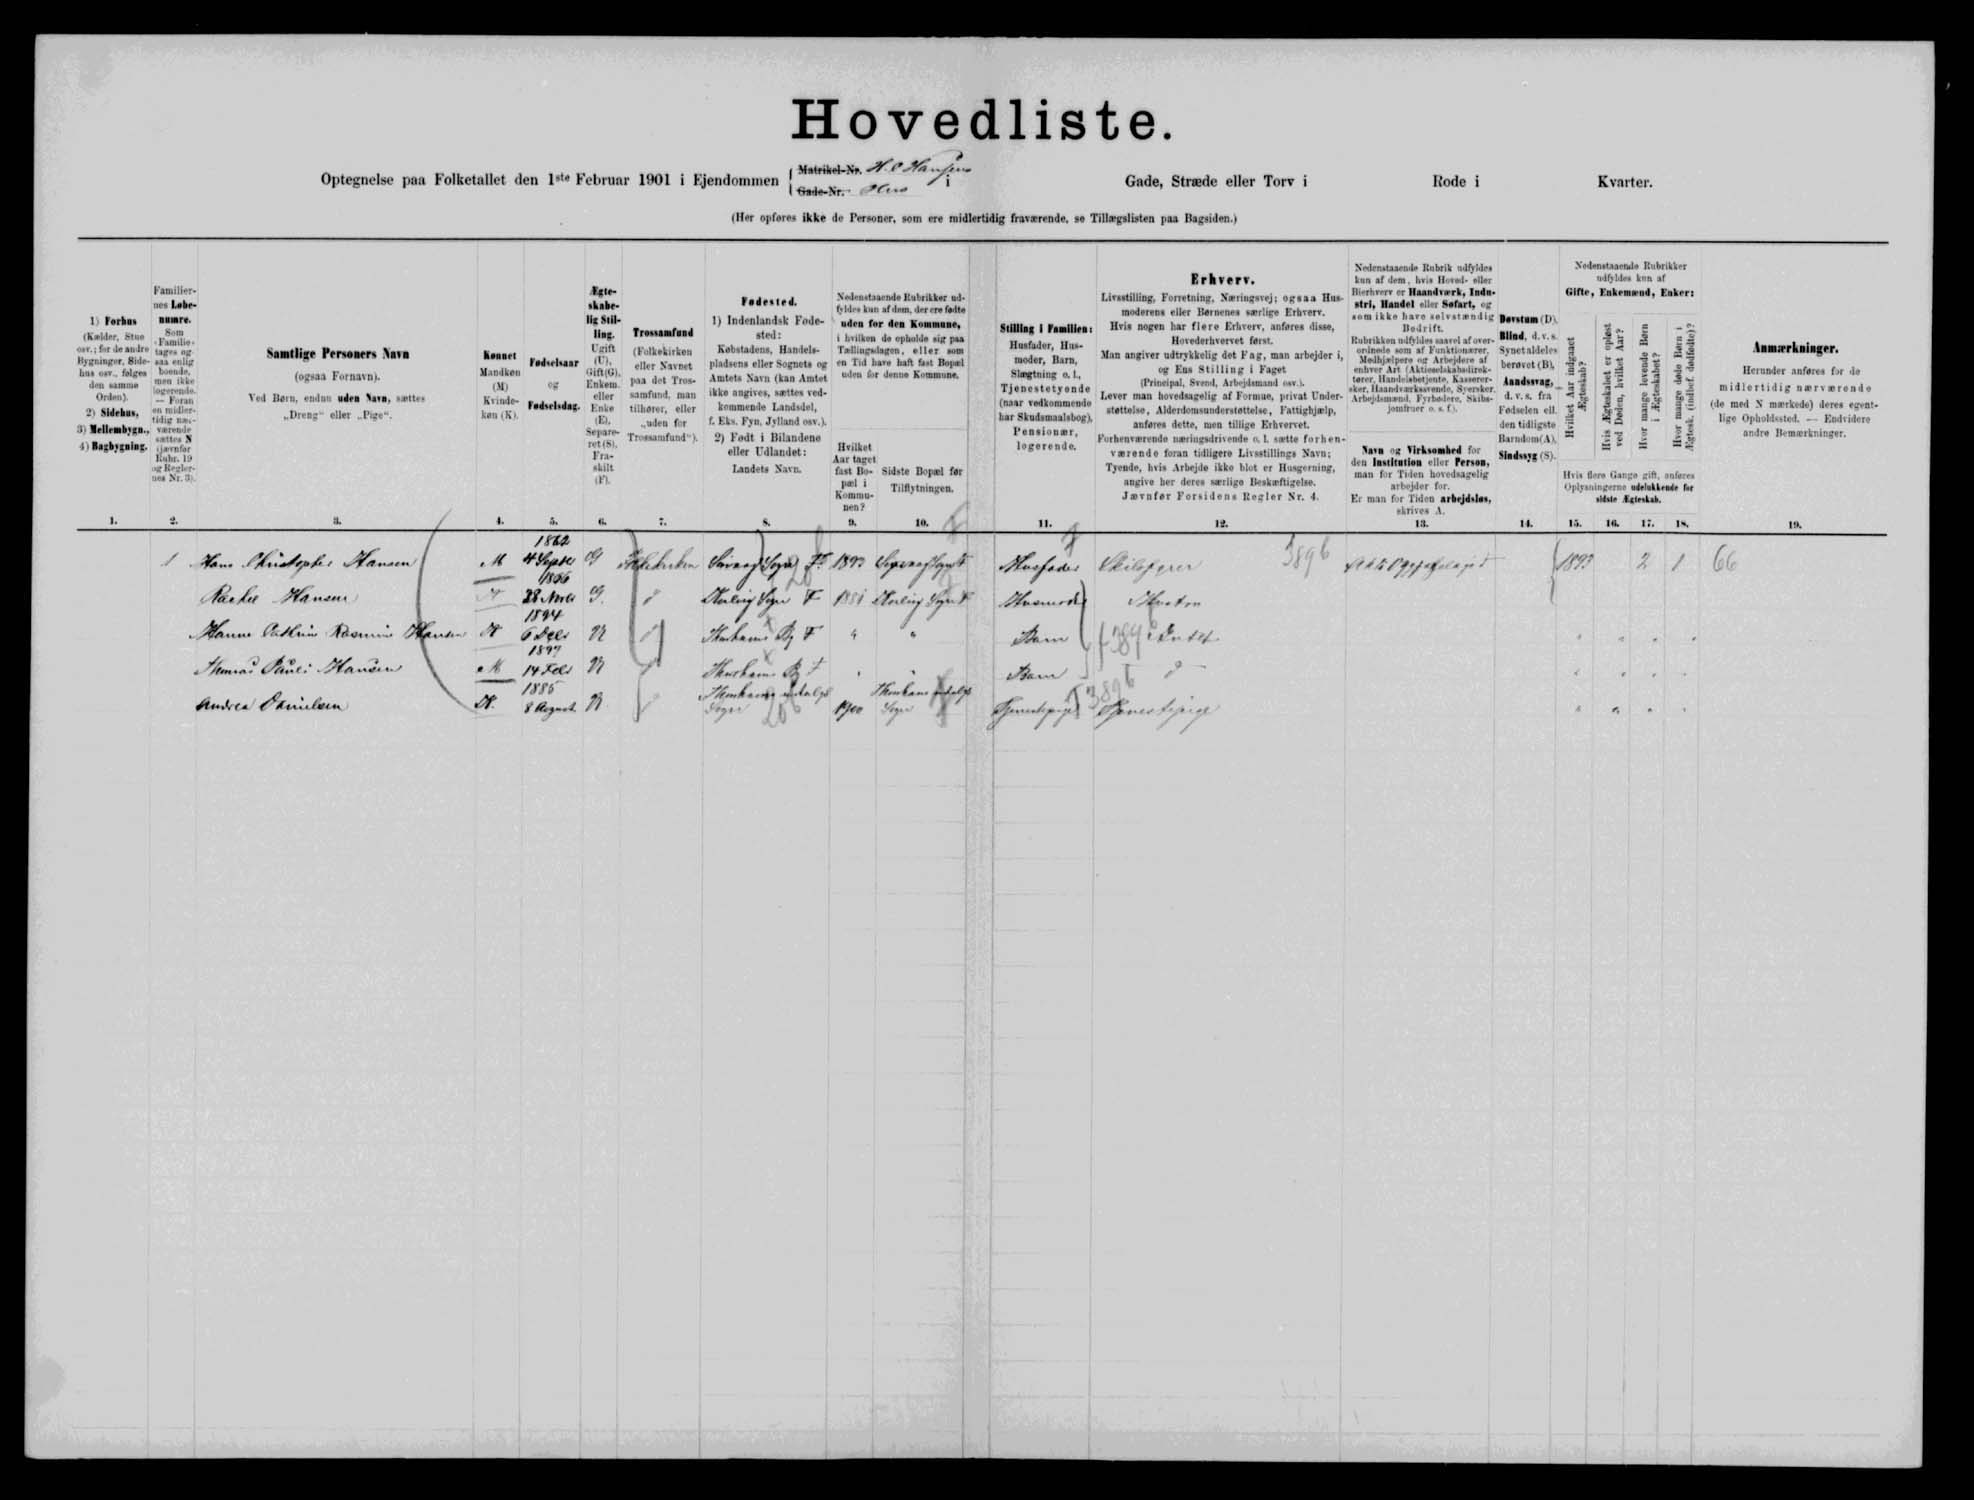 Hovedliste.
Optegnelse paa Folketallet den 1ste Februar 1901 i Ejendommen { Matrikel-Nr. H. C Hansens
Gade-Nr. Hus i Gade, Stræde eller Torv i Rode i Kvarter.
(Her opføres ikke de Personer, som ere midlertidig fraværende, se Tillægslisten paa Bagsiden.)
1) Forhus
(Kælder, Stue
osv.; for de andre
Bygninger, Side-
hus osv., følges
den samme
Orden).
2) Sidehus,
3) Mellembygn.,
4) Bagbygning.
1.
Familier-
nes Løbe-
numre.
Som
Familie
tages og-
saa enlig
boende,
men ikke
logerende.
— Foran
en midler-
tidig nær-
værende
sættes N
(jævnfør
Rubr. 19
og Regler-
nes Nr. 3).
2.
Samtlige Personers Navn
(ogsaa Fornavn).
Ved Børn, endnu uden Navn, sættes
„Dreng“ eller „Pige“.
3.
Kønnet
Mandkøn
(M)
Kvinde-
køn (K).
4.
Fødselsaar
og
Fødselsdag.
5.
Ægte-
skabe-
lig Stil-
ling.
Ugift
(U),
Gift(G),
Enkem.
eller
Enke
(E),
Separe-
ret (S),
Fra-
skilt
(F).
6.
Trossamfund
(Folkekirken
eller Navnet
paa det Tros-
samfund, man
tilhører, eller
„uden for
Trossamfund“).
7.
Fødested.
1) IndenlandskFøde-
sted:
Købstadens, Handels-
pladsens eller Sognets og
Amtets Navn (kan Amtet
ikke angives, sættes ved-
kommende Landsdel,
f. Eks. Fyn, Jylland osv.).
2) Født i Bilandene
eller Udlandet:
Landets Navn.
8.
Nedenstaaende Rubrikker ud-
fyldes kun af dem, der ere fødte
uden for den Kommune,
i hvilken de opholde sig paa
Tællingsdagen, eller som
en Tid have haft fast Bopæl
uden for denne Kommune.
Hvilket
Aar taget
fast Bo-
pæl i
Kommu-
nen?
9.
Sidste Bopæl før
Tilflytningen.
10.
Stilling i Familien:
Husfader, Hus-
moder, Barn,
Slægtning o. l.,
Tjenestetyende
(naar vedkommende
har Skudsmaalsbog),
Pensionær,
logerende.
11.
Erhverv.
Livsstilling, Forretning, Næringsvej; ogsaa Hus-
moderens eller Børnenes særlige Erhverv.
Hvis nogen har flere Erhverv, anføres disse,
Hovederhvervet først.
Man angiver udtrykkelig det Fag, man arbejder i,
og Ens Stilling i Faget
(Principal, Svend, Arbejdsmand osv.).
Lever man hovedsagelig af Formue, privat Under-
støttelse, Alderdomsunderstøttelse, Fattighjælp,
anføres dette, men tillige Erhvervet.
Forhenværende næringsdrivende o. l. sætte forhen-
værende foran tidligere Livsstillings Navn;
Tyende, hvis Arbejde ikke blot er Husgerning,
angive her deres særlige Beskæftigelse.
Jævnfør Forsidens Regler Nr. 4.
12.
Nedenstaaende Rubrik udfyldes
kun af dem, hvis Hoved- eller
Bierhverv er Haandværk, Indu-
stri, Handel eller Søfart, og
som ikke have selvstændig
Bedrift.
Rubrikken udfyldes saavel af over-
ordnede som af Funktionærer,
Medhjælpere og Arbejdere af
enhver Art (Aktieselskabsdirek-
tører, Handelsbetjente, Kasserer-
sker, Haandværkssvende, Syersker,
Arbejdsmænd, Fyrbødere, Skibs-
jomfruer o. s. f.).
Navn og Virksomhed for
den Institution eller Person,
man for Tiden hovedsagelig
arbejder for.
Er man for Tiden arbejdsløs,
skrives A.
13.
Døvstum (D),
Blind, d. v. s.
Synet aldeles
berøvet (B),
Aandssvag,
d. v. s. fra
Fødselen ell.
den tidligste
Barndom(A),
Sindssyg (S).
14.
Nedenstaaende Rubrikker
udfyldes kun af
Gifte, Enkemænd, Enker:
Hvilket Aar indgaaet
Ægteskab?
Hvis Ægteskabet er opløst
ved Døden, hvilket Aar?
Hvor mange levende Børn
i Ægteskabet?
Hvor mange døde Børn i
Ægtesk. (indbef. dødfødte)?
Hvis flere Gange gift, anføres
Oplysningerne udelukkende for
sidste Ægteskab.
15. 16. 17. 18.
Anmærkninger.
Herunder anføres for de
midlertidig nærværende
(de med N mærkede) deres egent-
lige Opholdssted. — Endvidere
andre Bemærkninger.
19.
1 Hans Christopher Hansen M 1862 4 Septbr G Folkekirken Sogn F 1893 Husfader 3896 1893 2 1 66
Hansen 28 Novbr G. Sogn F Husmoder
Hanne Rasmine Hansen K 1894 6 U By F " " Barn
Hansen M 1897 14 Febr U By F Barn
Andrea K. 1885 8 August U Sogn 1900 Sogn 3896 Tjenestepige